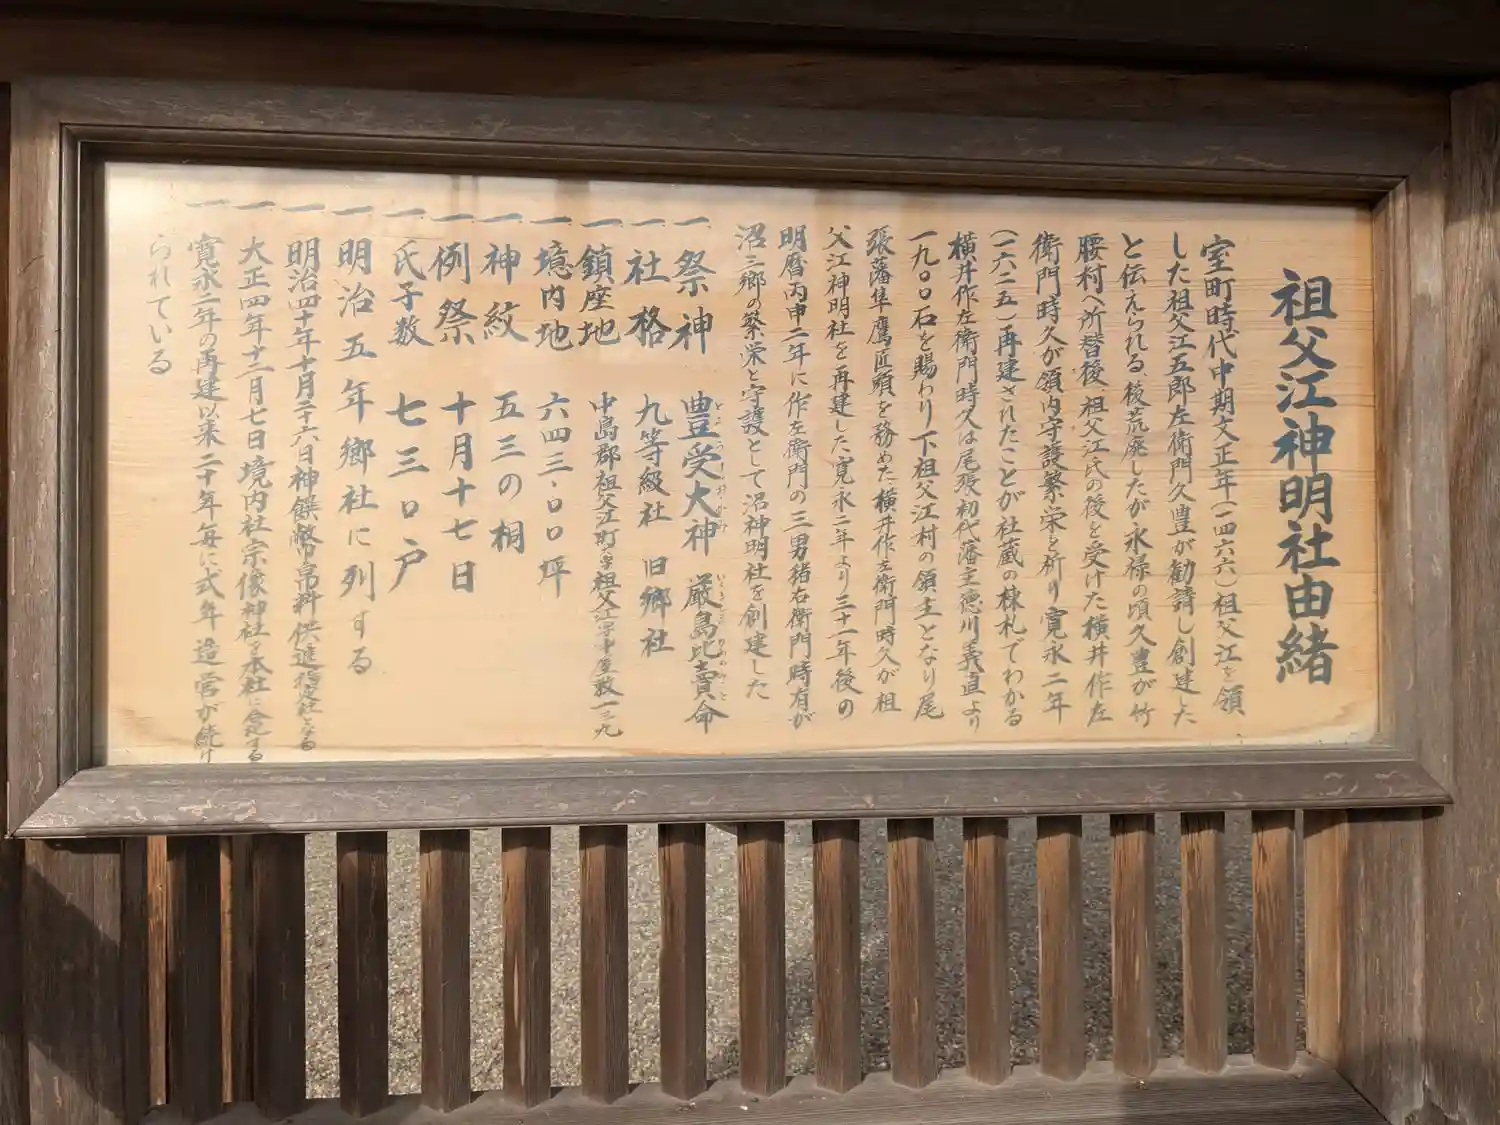 祖父江神明社由緒
室町時代中期文正年(一四六六)祖父江を領
した祖父江五郎左衛門久豊が勧請し創建した
と伝えられる 後荒廃したが永禄の頃久豊が竹
腰村へ所替後 祖父江氏の後を受けた横井作左
衛門時久が領内守護繁栄を祈り寛永二年
(一六二五)再建されたことが社蔵の棟札でわかる
横井作左衛門時久は尾張初代藩主徳川義直より
一九〇〇石を賜わり下祖父江村の領主となり尾
張藩隼鷹匠頭を務めた横井作左衛門時久が祖
父江神明社を再建した寛永二年より三十一年後の
明暦丙申二年に作左衛門の三男猪右衛門時有が
沼三郷の繁栄と守護として沼神明社を創建した
一 祭神 豊受大神 厳島比賣命
一 社格 九等級社 旧郷社
一 鎮座地 中島郡祖父江町大字祖父江字中屋敷一三九
一 境内地 六四三・〇〇坪
一 神紋 五三の桐
一 例祭 十月十七日
一 氏子数 七三〇戸
一 明治五年郷社に列する
一 明治四十年十月二十六日神饌幣帛料供進指定社となる
一 大正四年十二月七日境内社宗像神社を本社に合祀する
一 寛永二年の再建以来二十年毎に式年造営が続け
られている